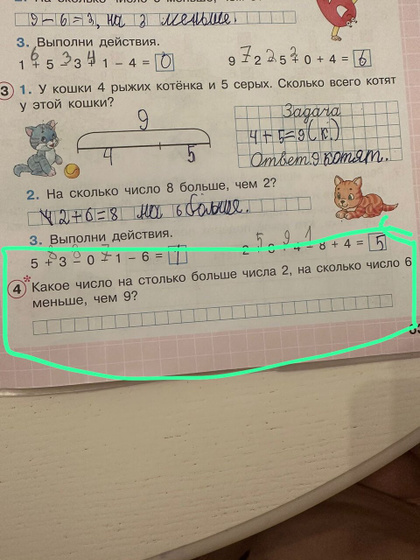 9-6=3, на 3 меньше.
3. Выполни действия.
1 + 5 - 3 + 1 - 4 = 0
9 2 5 0 + 4 = 6
3 1. У кошки 4 рыжих котёнка и 5 серых. Сколько всего котят
у этой кошки?
9
4 5
Задача
4+5=9(к.)
Ответ: 9 котят.
2. На сколько число 8 больше, чем 2?
2+6=8 на 6 больше.
3. Выполни действия.
5 + 3 - 0 - 1 - 6 = 1
8 + 4 = 5
4* Какое число на столько больше числа 2, на сколько число 6
меньше, чем 9?